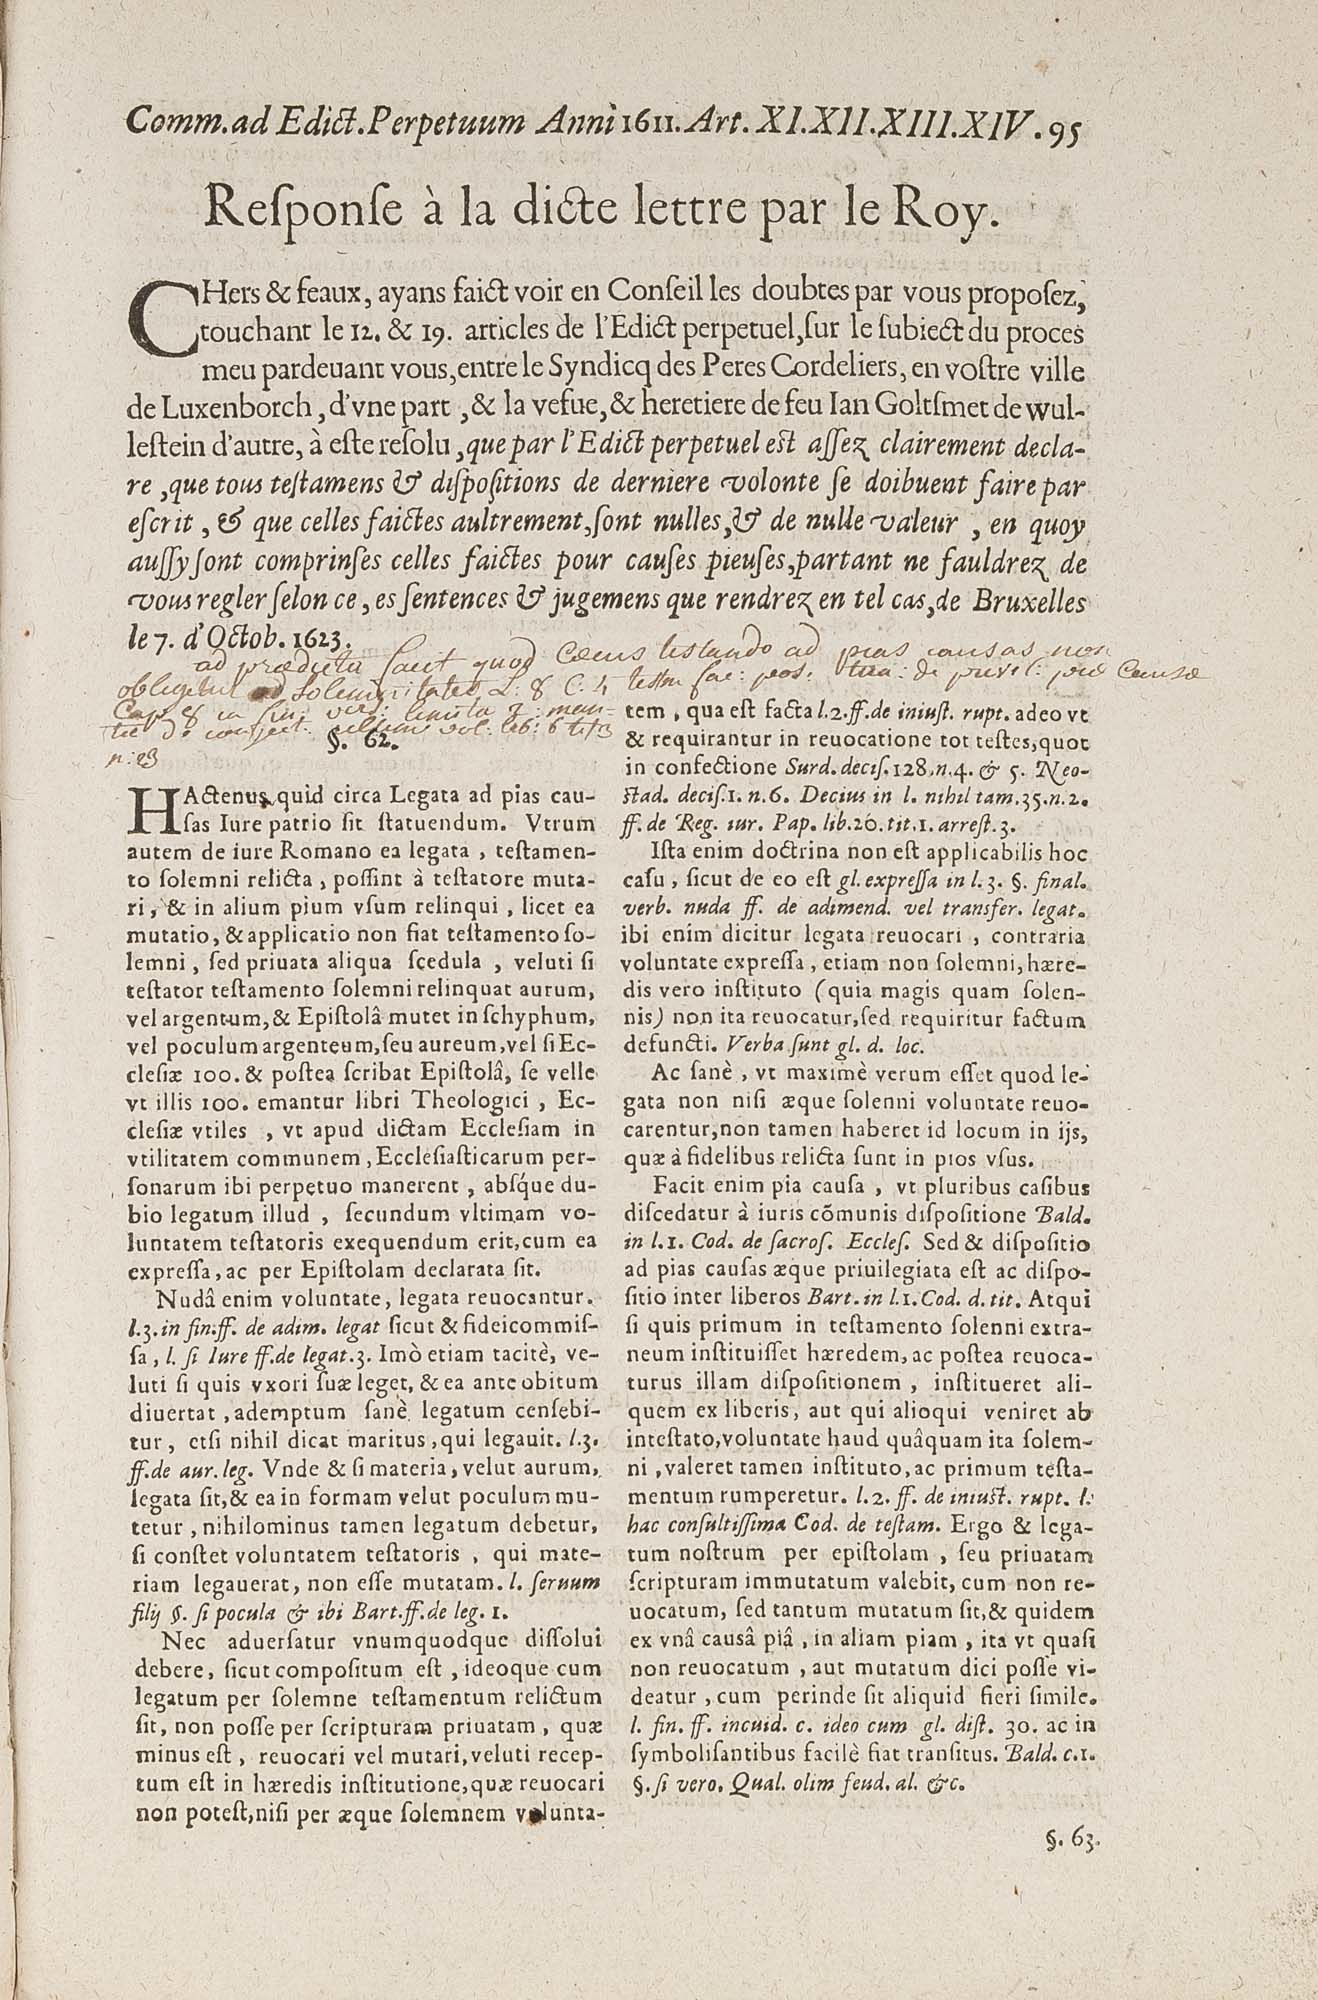 Comm. ad Edict. Perpetuum Anni 1611. Art. XI. XII. XIII. XIV. 95
Reſponſe à la dicte lettre par le Roy.
CHers & feaux, ayans faict voir en Conſeil les doubtes par vous propoſez,
touchant le 12. & 19. articles de l'Edict perpetuel, ſur le ſubiect du proces
meu pardeuant vous, entre le Syndicq des Peres Cordeliers, en voſtre ville
de Luxenborch, d'vne part, & la vefue, & heretiere de feu Ian Goltſmet de wul-
leſtein d'autre, à eſte reſolu, que par l'Edict perpetuel eſt aſſez clairement decla-
re, que tous teſtamens & diſpoſitions de derniere volonte ſe doibuent faire par
eſcrit, & que celles faictes aultrement, ſont nulles, & de nulle valeur, en quoy
auſſy ſont comprinſes celles faictes pour cauſes pieuſes, partant ne fauldrez de
vous regler ſelon ce, es ſentences & jugemens que rendrez en tel cas, de Bruxelles
le 7. d'Octob. 1623.
ad prædicta facit quod testando ad pias causas non
obligetur ad solemnitates L: 8 C: 4 de privil: piæ Causæ
Cap: 8 in fin: limita 2: man-
tic de conject: ultim: vol: lib: 6 tit 3
n: 23
§. 62.
HActenus quid circa Legata ad pias cau-
ſas Iure patrio ſit ſtatuendum. Vtrum
autem de iure Romano ea legata, teſtamen-
to ſolemni relicta, poſſint à teſtatore muta-
ri, & in alium pium vſum relinqui, licet ea
mutatio, & applicatio non fiat teſtamento ſo-
lemni, ſed priuata aliqua ſcedula, veluti ſi
teſtator teſtamento ſolemni relinquat aurum,
vel argentum, & Epiſtolâ mutet in ſchyphum,
vel poculum argenteum, ſeu aureum, vel ſi Ec-
cleſiæ 100. & poſtea ſcribat Epiſtolâ, ſe velle
vt illis 100. emantur libri Theologici, Ec-
cleſiæ vtiles, vt apud dictam Eccleſiam in
vtilitatem communem, Eccleſiaſticarum per-
ſonarum ibi perpetuo manerent, abſq́ue du-
bio legatum illud, ſecundum vltimam vo-
luntatem teſtatoris exequendum erit, cum ea
expreſſa, ac per Epiſtolam declarata ſit.
Nudâ enim voluntate, legata reuocantur.
l. 3. in fin. ff. de adim. legat ſicut & fideicommiſ-
ſa, l. ſi Iure ff. de legat. 3. Imò etiam tacitè, ve-
luti ſi quis vxori ſuæ leget, & ea ante obitum
diuertat, ademptum ſanè legatum cenſebi-
tur, etſi nihil dicat maritus, qui legauit. l. 3.
ff. de aur. leg. Vnde & ſi materia, velut aurum,
legata ſit, & ea in formam velut poculum mu-
tetur, nihilominus tamen legatum debetur,
ſi conſtet voluntatem teſtatoris, qui mate-
riam legauerat, non eſſe mutatam. l. ſeruum
filij §. ſi pocula & ibi Bart. ff. de leg. 1.
Nec aduerſatur vnumquodque diſſolui
debere, ſicut compoſitum eſt, ideoque cum
legatum per ſolemne teſtamentum relictum
ſit, non poſſe per ſcripturam priuatam, quæ
minus eſt, reuocari vel mutari, veluti recep-
tum eſt in hæredis inſtitutione, quæ reuocari
non poteſt, niſi per æque ſolemnem volunta-
tem, qua eſt facta l. 2. ff. de iniuſt. rupt. adeo vt
& requirantur in reuocatione tot teſtes, quot
in confectione Surd. deciſ. 128. n. 4. & 5. Neo-
ſtad. deciſ. 1. n. 6. Decius in l. nihil tam. 35. n. 2.
ff. de Reg. iur. Pap. lib. 20. tit. 1. arreſt. 3.
Iſta enim doctrina non eſt applicabilis hoc
caſu, ſicut de eo eſt gl. expreſſa in l. 3. §. final.
verb. nuda ff. de adimend. vel transfer. legat.
ibi enim dicitur legata reuocari, contraria
voluntate expreſſa, etiam non ſolemni, hære-
dis vero inſtituto (quia magis quam ſolen-
nis) non ita reuocatur, ſed requiritur factum
defuncti. Verba ſunt gl. d. loc.
Ac ſanè, vt maximè verum eſſet quod le-
gata non niſi æque ſolenni voluntate reuo-
carentur, non tamen haberet id locum in ijs,
quæ à fidelibus relicta ſunt in pios vſus.
Facit enim pia cauſa, vt pluribus caſibus
diſcedatur à iuris cõmunis diſpoſitione Bald.
in l. 1. Cod. de ſacroſ. Eccleſ. Sed & diſpoſitio
ad pias cauſas æque priuilegiata eſt ac diſpo-
ſitio inter liberos Bart. in l. 1. Cod. d. tit. Atqui
ſi quis primum in teſtamento ſolenni extra-
neum inſtituiſſet hæredem, ac poſtea reuoca-
turus illam diſpoſitionem, inſtitueret ali-
quem ex liberis, aut qui alioqui veniret ab
inteſtato, voluntate haud quâquam ita ſolem-
ni, valeret tamen inſtituto, ac primum teſta-
mentum rumperetur. l. 2. ff. de iniuſt. rupt. l.
hac conſultiſſima Cod. de teſtam. Ergo & lega-
tum noſtrum per epiſtolam, ſeu priuatam
ſcripturam immutatum valebit, cum non re-
uocatum, ſed tantum mutatum ſit, & quidem
ex vnâ cauſâ piâ, in aliam piam, ita vt quaſi
non reuocatum, aut mutatum dici poſſe vi-
deatur, cum perinde ſit aliquid fieri ſimile.
l. fin. ff. incuid. c. ideo cum gl. diſt. 30. ac in
ſymboliſantibus facilè fiat tranſitus. Bald. c. 1.
§. ſi vero. Qual. olim feud. al. &c.
§. 63.